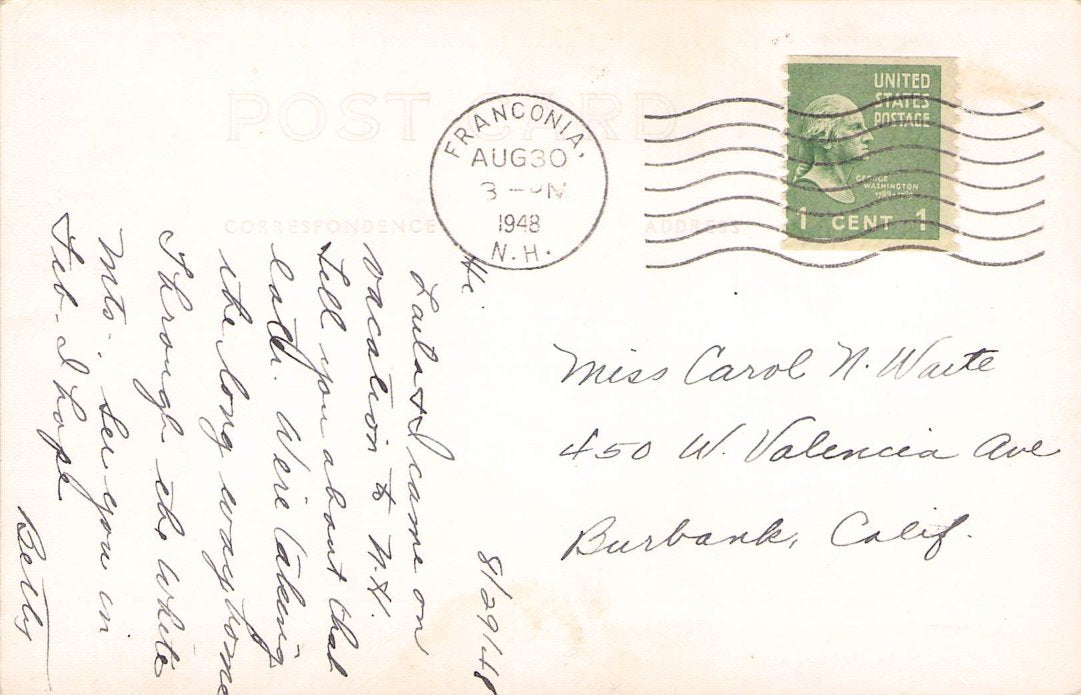 POST CARD
CORRESPONDENCE
ADDRESS
FRANCONIA,
AUG 30
3 - PM
1948
N.H.
UNITED
STATES
POSTAGE
GEORGE
WASHINGTON
1 CENT 1
8/29/48
Hi.
& I came on
vacation to N.H.
Tell you about that
later. We're taking
the long way home
through the White
Mts. See you in
Feb - I hope
Betty
Miss Carol N. Waite
450 W. Valencia Ave
Burbank, Calif.